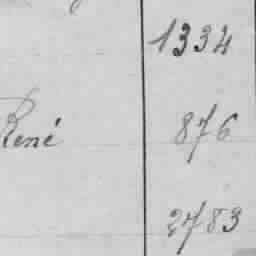 1334
René 876
2783